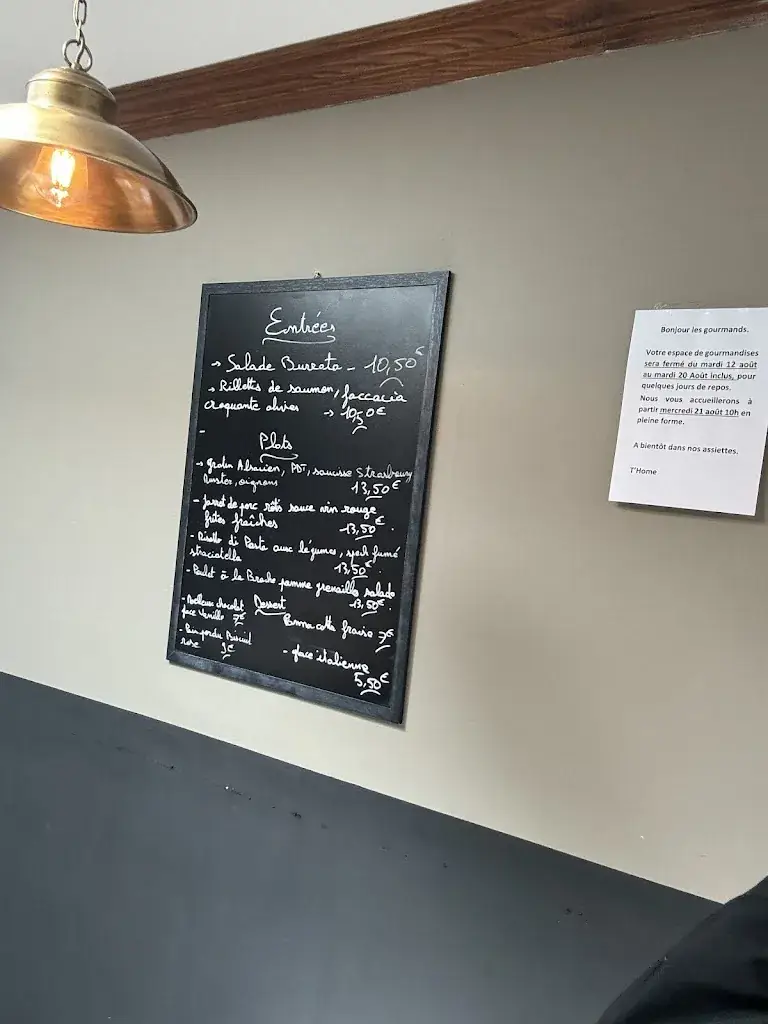 Entrées
→ Salade Burrata - 10,50€
→ Rillettes de saumon, foccacia
croquante olives → 10,50€
-
Plats
→ gratin Alsacien, PDT, saucisse Strasbourg
Munster, oignons 13,50€
- Jarret de porc rôtis sauce vin rouge
frites fraîches 13,50€.
- Risotto di Pasta aux légumes, speck fumé
straciatella 13,50€.
- Poulet à la Broche pomme grenaille salade
13,50€.
Dessert
- Moelleux chocolat
glace Vanille 7€
Panna cotta fraise 7€
- Pain perdu Biscuit
rose 9€
- glace italienne
5,50€
Bonjour les gourmands.
Votre espace de gourmandises
sera fermé du mardi 12 août
au mardi 20 Août inclus, pour
quelques jours de repos.
Nous vous accueillerons à
partir mercredi 21 août 10h en
pleine forme.
A bientôt dans nos assiettes.
T'Home